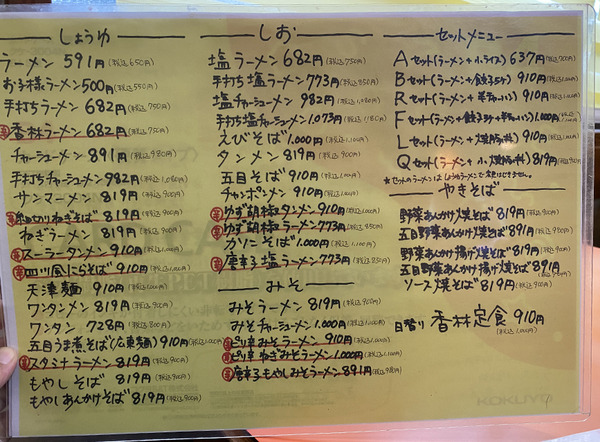 しょうゆ
ラーメン 591円(税込650円)
お子様ラーメン500円(税込550円)
手打ちラーメン 682円(税込750円)
辛 香林ラーメン 682円(税込750円)
チャーシューメン 891円(税込980円)
手打ちチャーシューメン 982円(税込1,080円)
サンマーメン 819円(税込900円)
ねぎそば 819円(税込900円)
ねぎラーメン 819円(税込900円)
辛 スーラータンメン 910円(税込1,000円)
辛 四川風にらそば 910円(税込1,000円)
天津麺 910円(税込1,000円)
ワンタンメン 819円(税込900円)
ワンタン 728円(税込800円)
五目うま煮そば(広東麺)910円(税込1,000円)
辛 スタミナラーメン 819円(税込900円)
もやしそば 819円(税込900円)
もやしあんかけそば 819円(税込900円)
しお
塩ラーメン 682円(税込750円)
手打ち塩ラーメン 773円(税込850円)
塩チャーシューメン 982円(税込1,080円)
手打塩チャーシューメン 1,073円(税込1,180円)
えびそば 1,000円(税込1,100円)
タンメン 819円(税込900円)
五目そば 910円(税込1,000円)
チャンポンメン 910円(税込1,000円)
辛 ゆず胡椒タンメン 910円(税込1,000円)
辛 ゆず胡椒ラーメン 773円(税込850円)
カソーそば 1,000円(税込1,100円)
辛 唐辛子塩ラーメン 773円(税込850円)
みそ
みそラーメン 819円(税込900円)
みそチャーシューメン 1,000円(税込1,100円)
辛 ピリ辛みそラーメン 910円(税込1,000円)
辛 ピリ辛ねぎみそラーメン 1,000円(税込1,100円)
辛 唐辛子もやしみそラーメン 891円(税込980円)
セットメニュー
Aセット(ラーメン+小ライス) 637円(税込700円)
Bセット(ラーメン+餃子3ケ) 910円(税込1,000円)
Rセット(ラーメン+半チャーハン) 910円(税込1,000円)
Fセット(ラーメン+餃子3ケ+半チャーハン) 1,000円(税込1,100円)
Lセット(ラーメン+焼豚丼) 910円(税込1,000円)
Qセット(ラーメン+小焼豚丼) 819円(税込900円)
*セットのラーメンはしょうゆラーメンで変更はできません。
やきそば
野菜あんかけ焼そば 819円(税込900円)
五目野菜あんかけ焼そば 891円(税込980円)
野菜あんかけ揚げ焼そば 819円(税込900円)
五目野菜あんかけ揚げ焼そば 891円
ソース焼そば 819円(税込900円)
日替り 香林定食 910円(税込1,000円)
KOKUYO